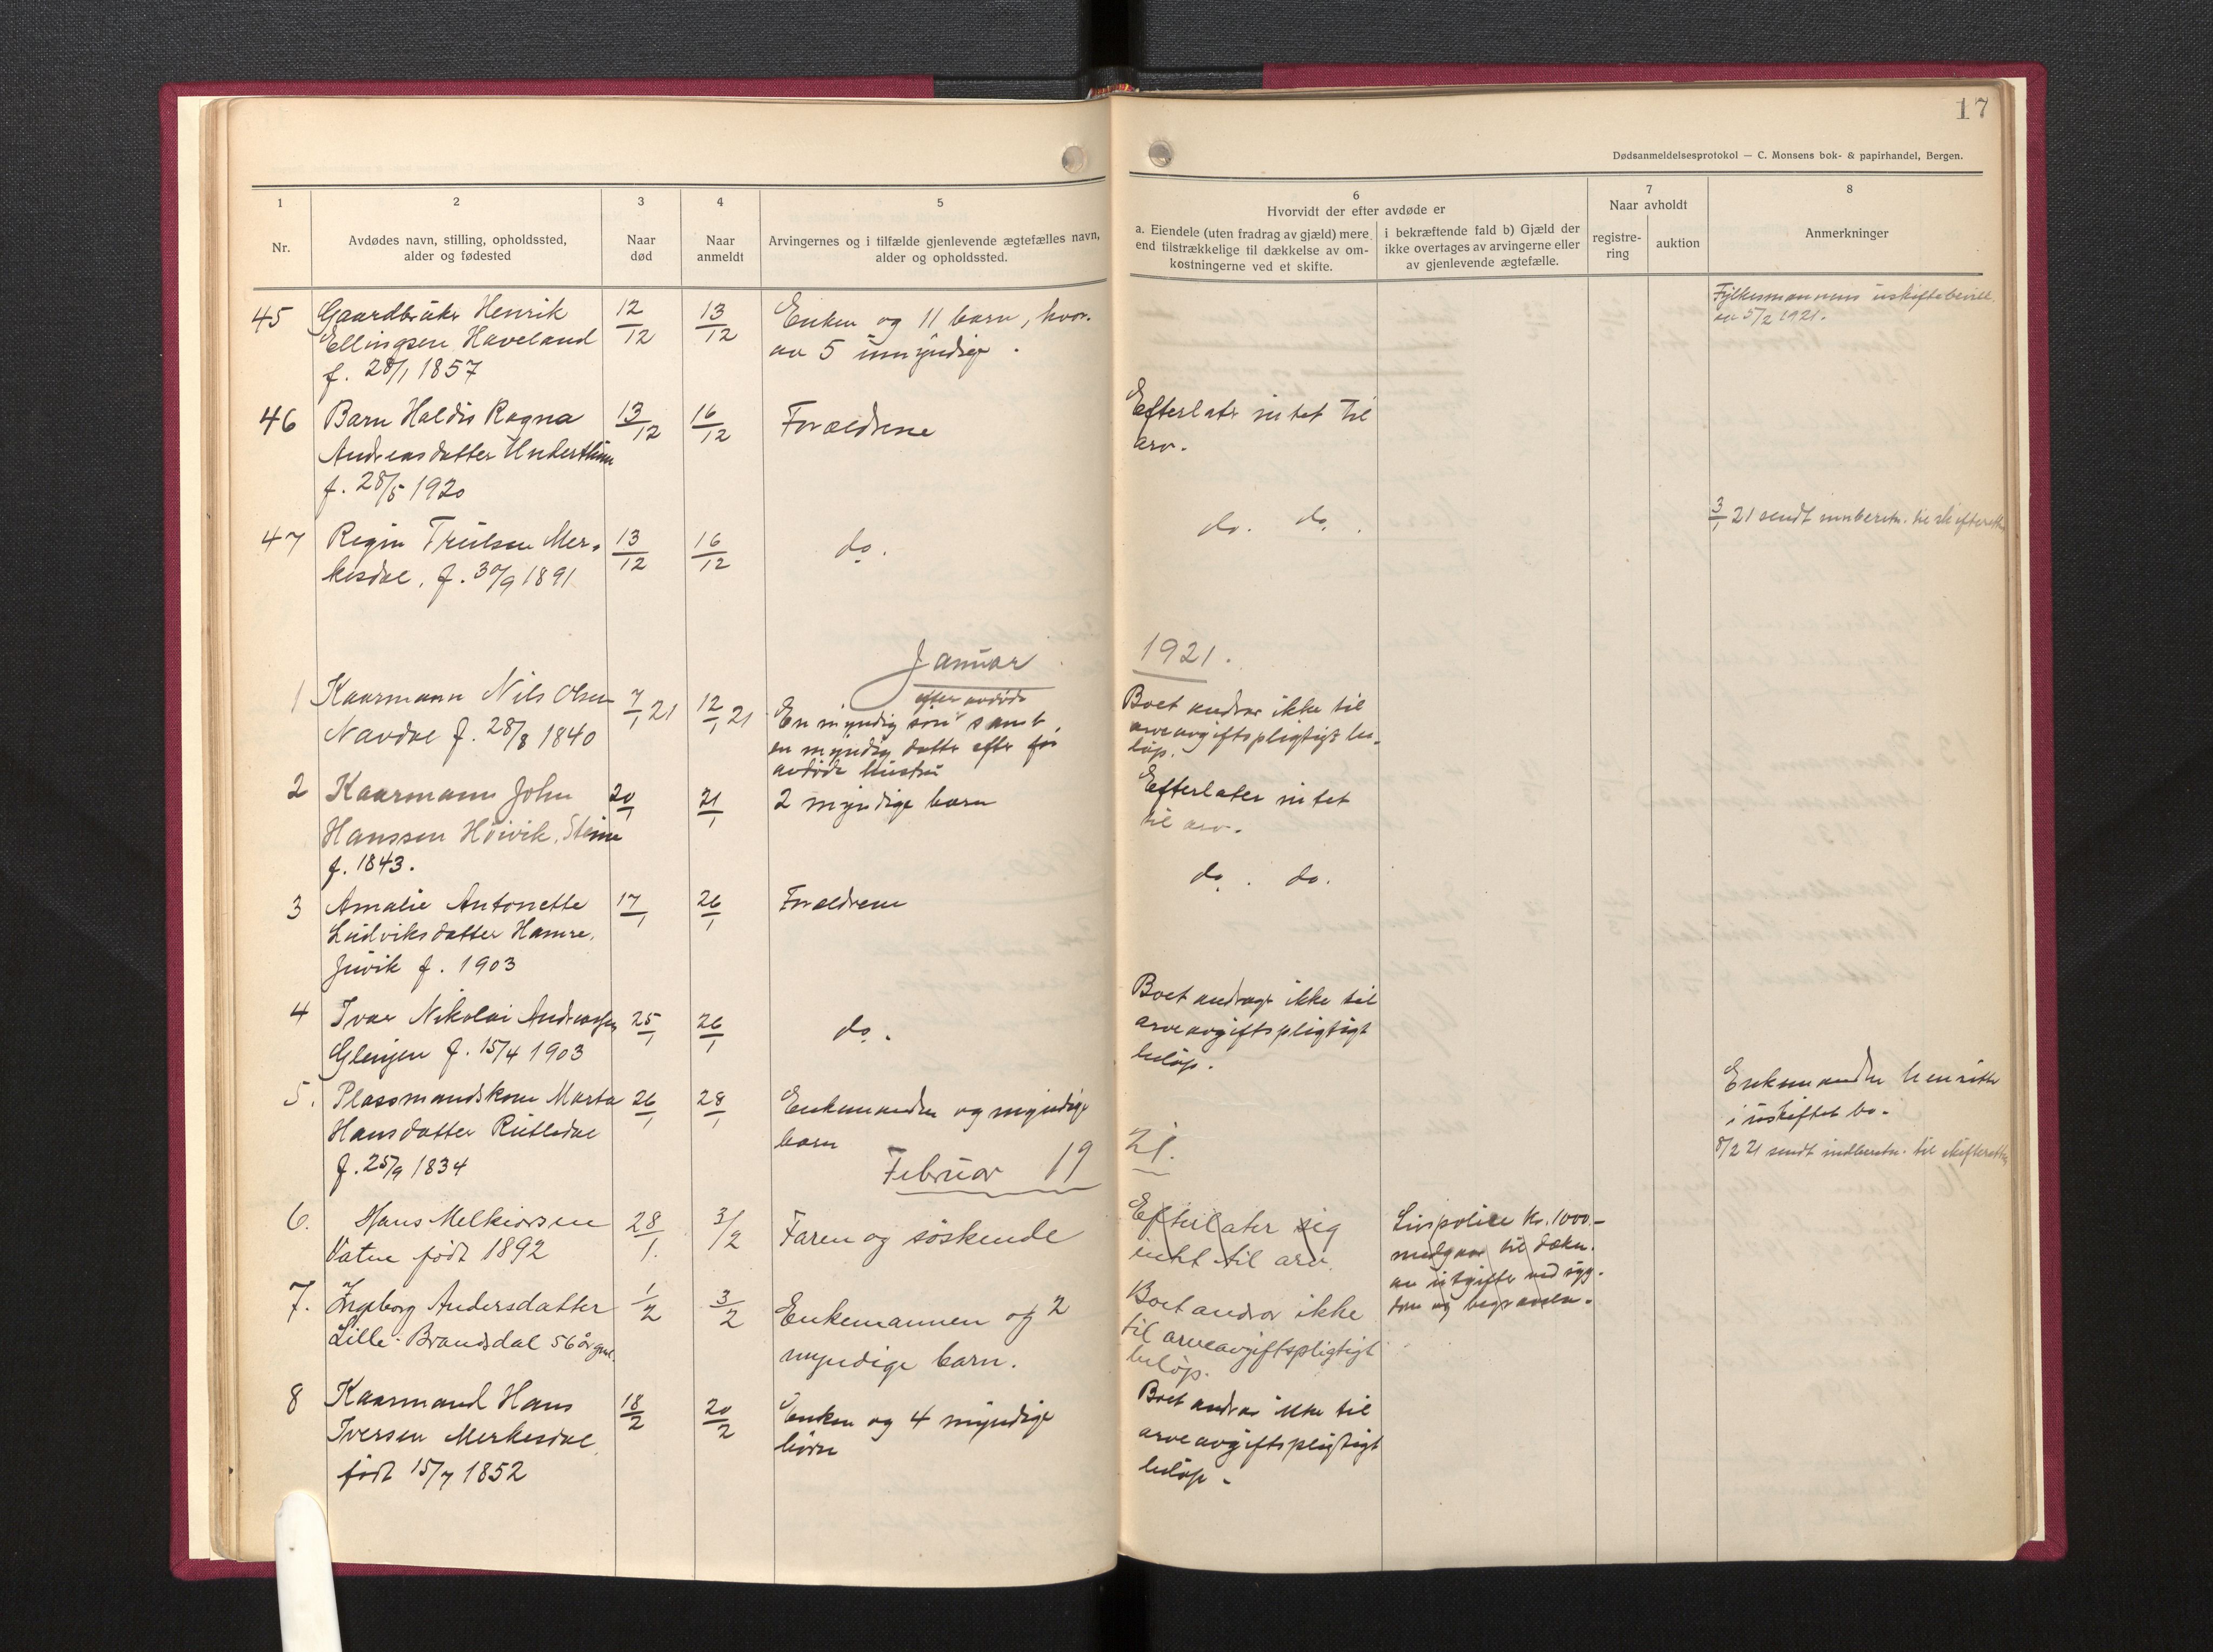 17
Dødsanmeldelsesprotokol — C. Monsens bok- & papirhandel, Bergen.
1
2
3
4
5
6
7
8
Nr.
Avdødes navn, stilling, opholdssted,
alder og fødested
Naar
død
Naar
anmeldt
Arvingernes og i tilfælde gjenlevende ægtefælles navn,
alder og opholdssted.
Hvorvidt der efter avdøde er
a. Eiendele (uten fradrag av gjæld) mere
end tilstrækkelige til dækkelse av om-
kostningerne ved et skifte.
i bekræftende fald b) Gjæld der
ikke overtages av arvingerne eller
av gjenlevende ægtefælle.
Naar avholdt
registre-
ring
auktion
Anmerkninger
45
Gaardbruker Henrik
Ellingsen Haveland
f. 28/1 1857
12/12
13/12
Enken og 11 barn, hvor-
av 5 umyndige.
Fylkesmannens uskiftebevill.
av 5/2 1921.
46
Barn Haldis Ragna
Andreasdatter
f. 28/5 1920
13/12
16/12
Forældrene
Efterlater intet til
arv.
47
Regin Trulsen Mer-
kesdal, f. 30/9 1891
13/12
16/12
do.
do. do.
3/1 21 sendt innberetn. til skifteretten
Januar 1921.
1
Kaarmann Nils Olsen
Navdal f. 28/8 1840
7/1 21
12/1 21
efter avdøde
En myndig søn samt
en myndig datter efter før
avdøde hustru
Boet andrar ikke til
arveavgiftspligtigt be-
løp.
2
Kaarmann John
Hanssen Høivik, Steine
f. 1843.
20/1
21/1
2 myndige barn
Efterlater intet
til arv.
3
Amalie Antonette
Ludviksdatter Hamre,
Juvik f. 1903
17/1
26/1
Forældrene
do. do.
4
Ivar Nikolai Andreassen
Glenjen f. 15/4 1903
25/1
26/1
do.
Boet andrager ikke til
arveavgiftspligtigt
beløp.
5.
Plassmandskone Marta
Hansdatter Rutledal
f. 25/9 1834
26/1
28/1
Enkemanden og myndige
barn
Enkemanden hensitter
i uskiftet bo.
8/2 21 sendt indberetn. til skifteretten
Februar 1921.
6.
Hans Melkiorsen
Vatne født 1892
28/1.
3/2
Faren og søskende
Efterlater sig
intet til arv.
Livspolice kr. 1000.-
medgaar til dækn.
av utgifter ved syg-
dom og begravelse.
7.
Ingeborg Andersdatter
Lille-Brandsdal 56 år gml.
1/2
3/2
Enkemannen og 2
myndige barn.
Boet andrar ikke
til arveavgiftspligtigt
beløp.
8
Kaarmand Hans
Iversen Merkesdal,
født 15/7 1852
18/2
20/2
Enken og 4 myndige
børn
Boet andrar ikke til
arveavgiftspligtigt
beløp.